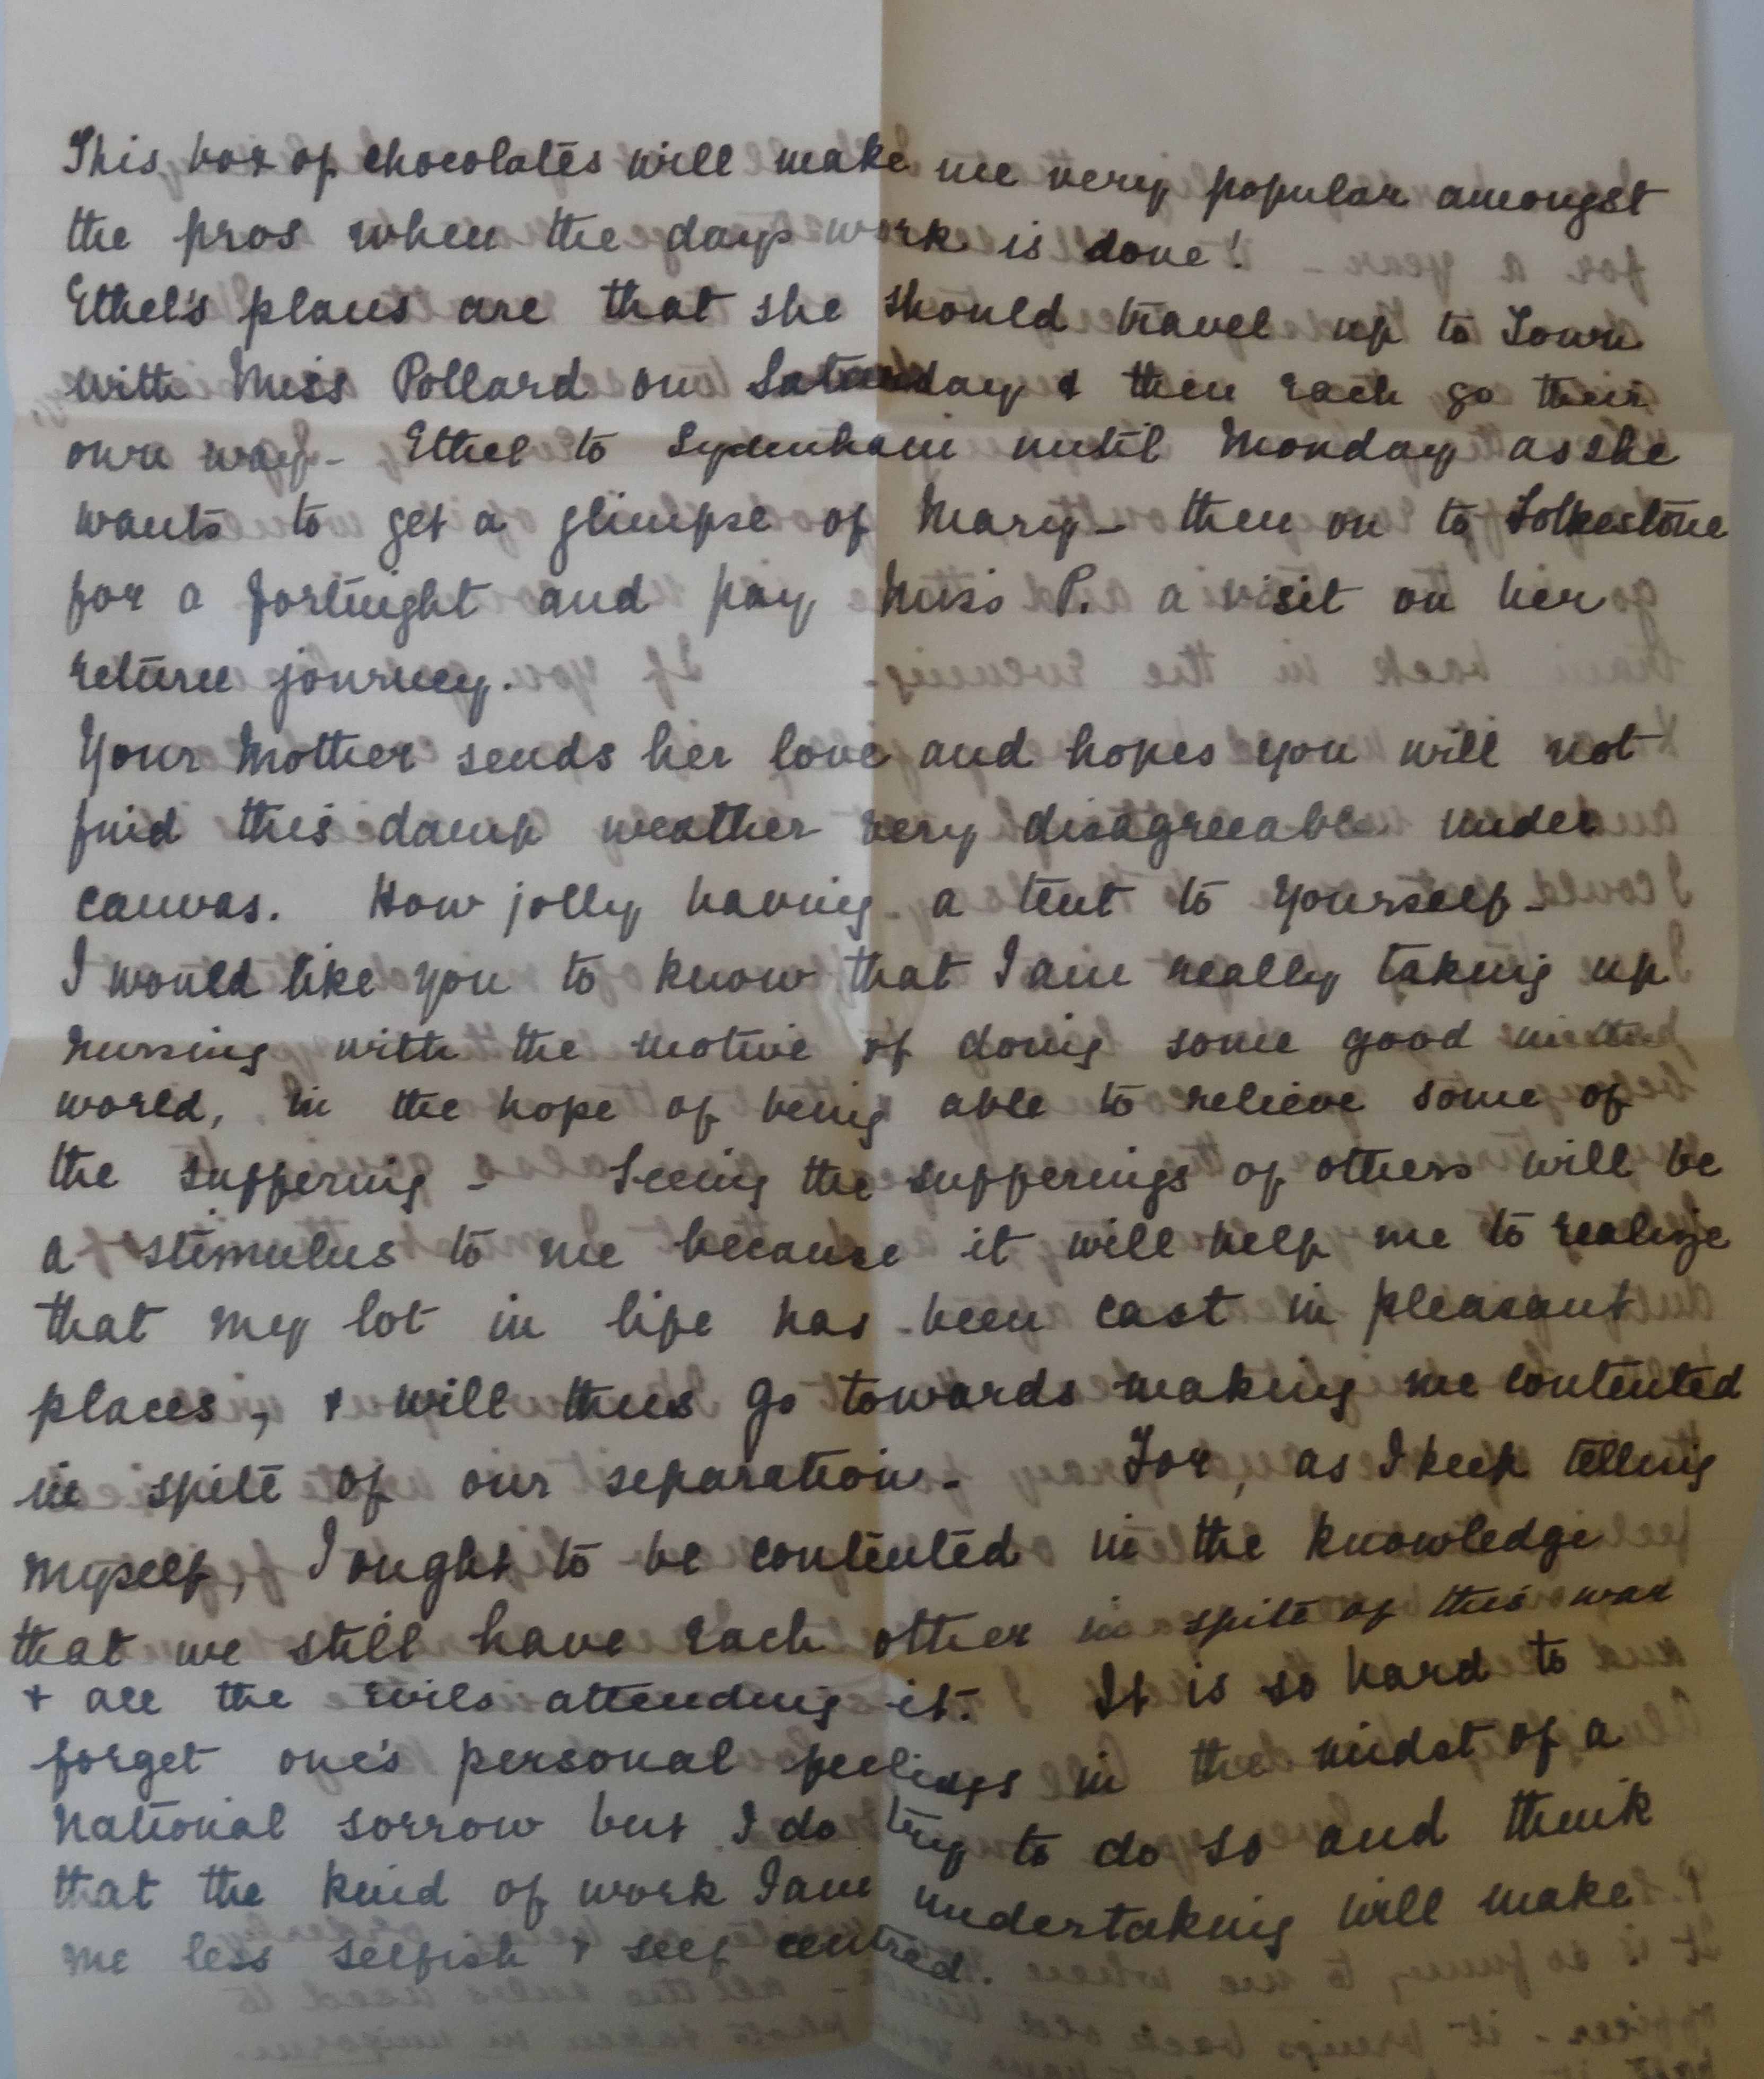 This box of chocolates will make me very popular amongst
the pros when the days work is done!
Ethel's plans are that she should travel up to Town
with Miss Pollard on Saturday & then each go their
own way - Ethel to Sydenham until Monday as she
wants to get a glimpse of Mary - then on to Folkestone
for a fortnight and pay Miss P. a visit on her
return journey.
Your Mother sends her love and hopes you will not
find this damp weather very disagreeable under
canvas. How jolly having a tent to yourself -
I would like you to know that I am really taking up
nursing with the motive of doing some good in the
world, in the hope of being able to relieve some of
the suffering - Seeing the sufferings of others will be
a stimulus to me because it will help me to realize
that my lot in life has been cast in pleasant
places, & will thus go towards making me contented
in spite of our separation - For, as I keep telling
myself, I ought to be contented in the knowledge
that we still have each other in spite of this war
& all the evils attending it. It is so hard to
forget one's personal feelings in the midst of a
national sorrow but I do try to do so and think
that the kind of work I am undertaking will make
me less selfish & self centred.